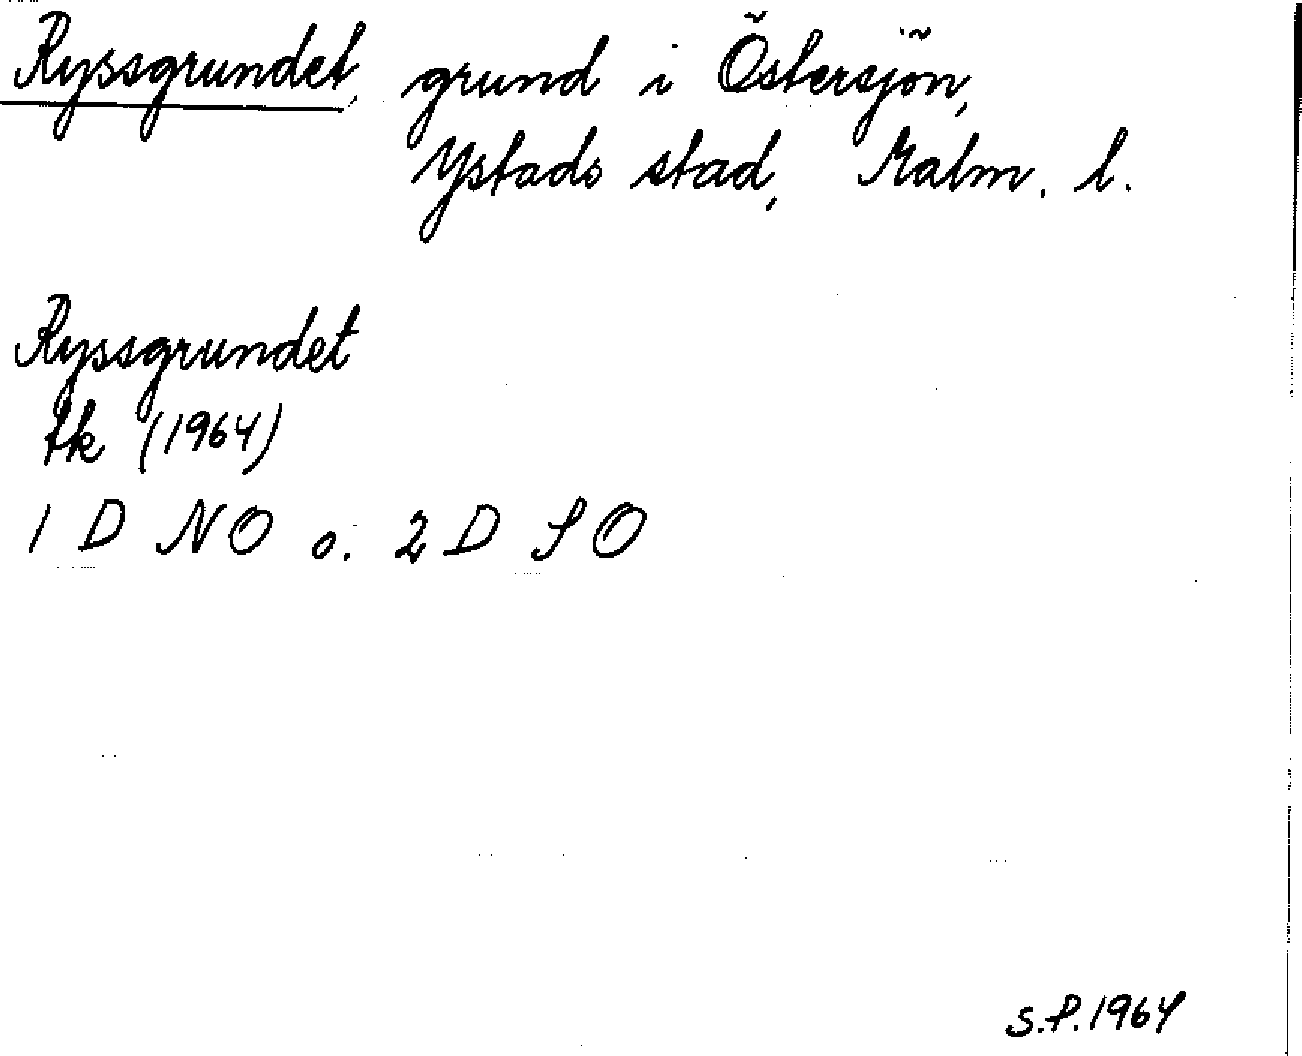 Ryssgrundet, grund i Östersjön,
Ystads stad, Malm. l.
Ryssgrundet
tk (1964)
1 D NO o. 2 D SO
S.P. 1964